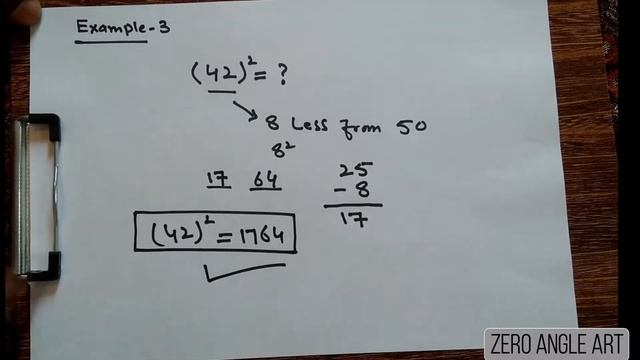 Example-3
(42)² = ?
8 Less from 50
8²
17 64
25
- 8
17
(42)² = 1764
ZERO ANGLE ART